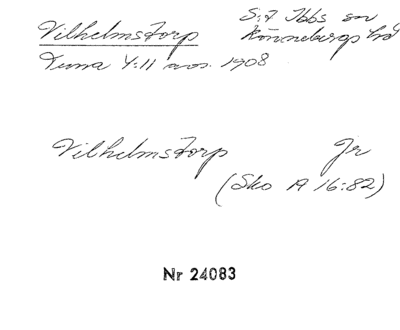 Vilhelmstorp S:t Ibbs sn
Rönnebergs hd
Tuna 4:11 avs. 1908
Vilhelmstorp Jr
(Sko A 16:82)
Nr 24083